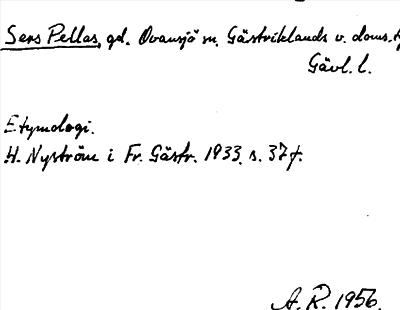 Sers Pellas, gd. Ovansjö sn. Gästriklands v. doms.
Gävl. l.
Etymologi.
H. Nyström i Fr. Gästr. 1933. s. 37 f.
A. R. 1956.